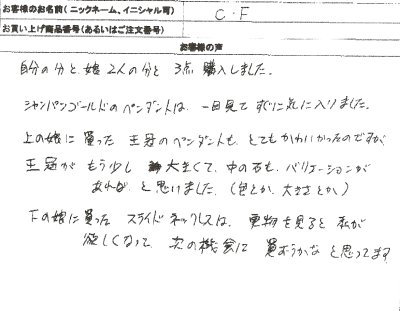 お客様のお名前(ニックネーム、イニシャル可) C・F
お買い上げ商品番号(あるいはご注文番号)
お客様の声
自分の分と、娘2人の分と 3点 購入しました。
シャンパンゴールドのペンダントは、一目見て すぐに気に入りました。
上の娘に 買った 王冠のペンダントも、とてもかわいかったのですが、
王冠が もう少し 大きくて、中の石も、バリエーションが
あれば と思いました。(色とか、大きさとか)
下の娘に買った スライドネックレスは、実物を見ると 私が
欲しくなって 次の機会に 買おうかな と思ってます